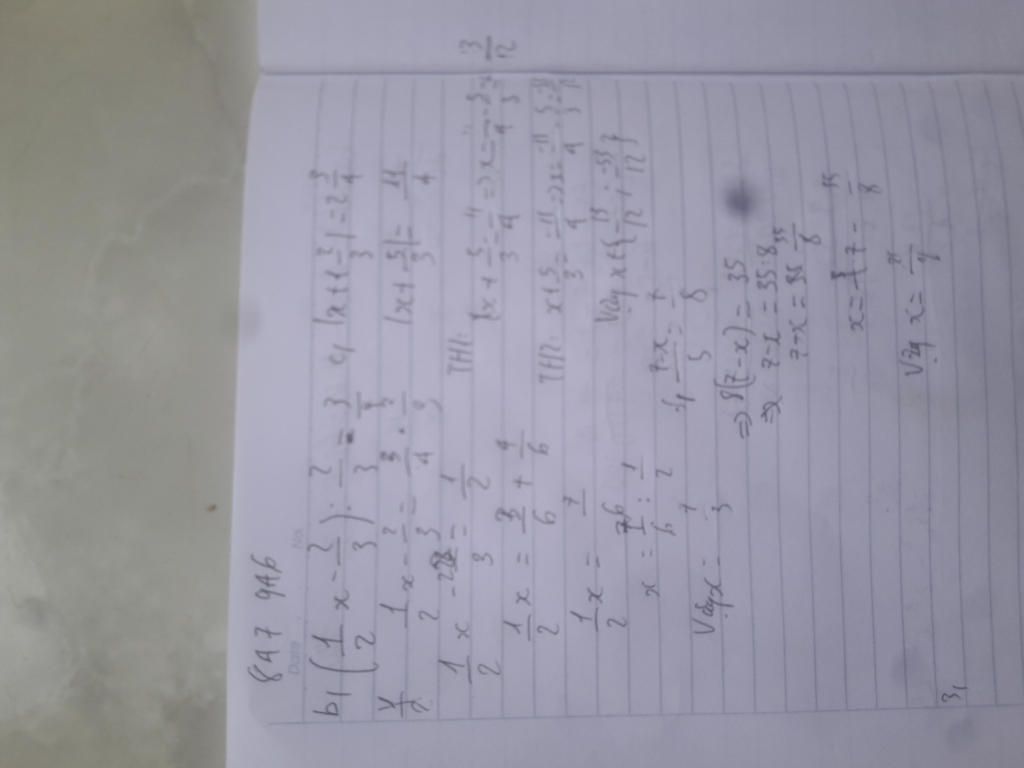 8A7 9A6
Date No.
b, (1/2 x - 2/3) : 2/3 = 3/4
1/2 x - 2/3 = 3/4 . 2/3
1/2 x - 2/3 = 1/2
1/2 x = 3/6 + 4/6
1/2 x = 7/6
x = 7/6 : 1/2
Vậy x = 7/3
c, |x + 5/3| = 2 3/4
|x + 5/3| = 11/4
TH1: x + 5/3 = 11/4 => x = 11/4 - 5/3 = 13/12
TH2: x + 5/3 = -11/4 => x = -11/4 - 5/3
Vậy x ∈ {13/12 ; -53/12}
7-x/5 = 7/8
=> 8(7-x) = 35
=> 7-x = 35:8
7-x = 35/8
x = 7 - 35/8
Vậy x =
3,